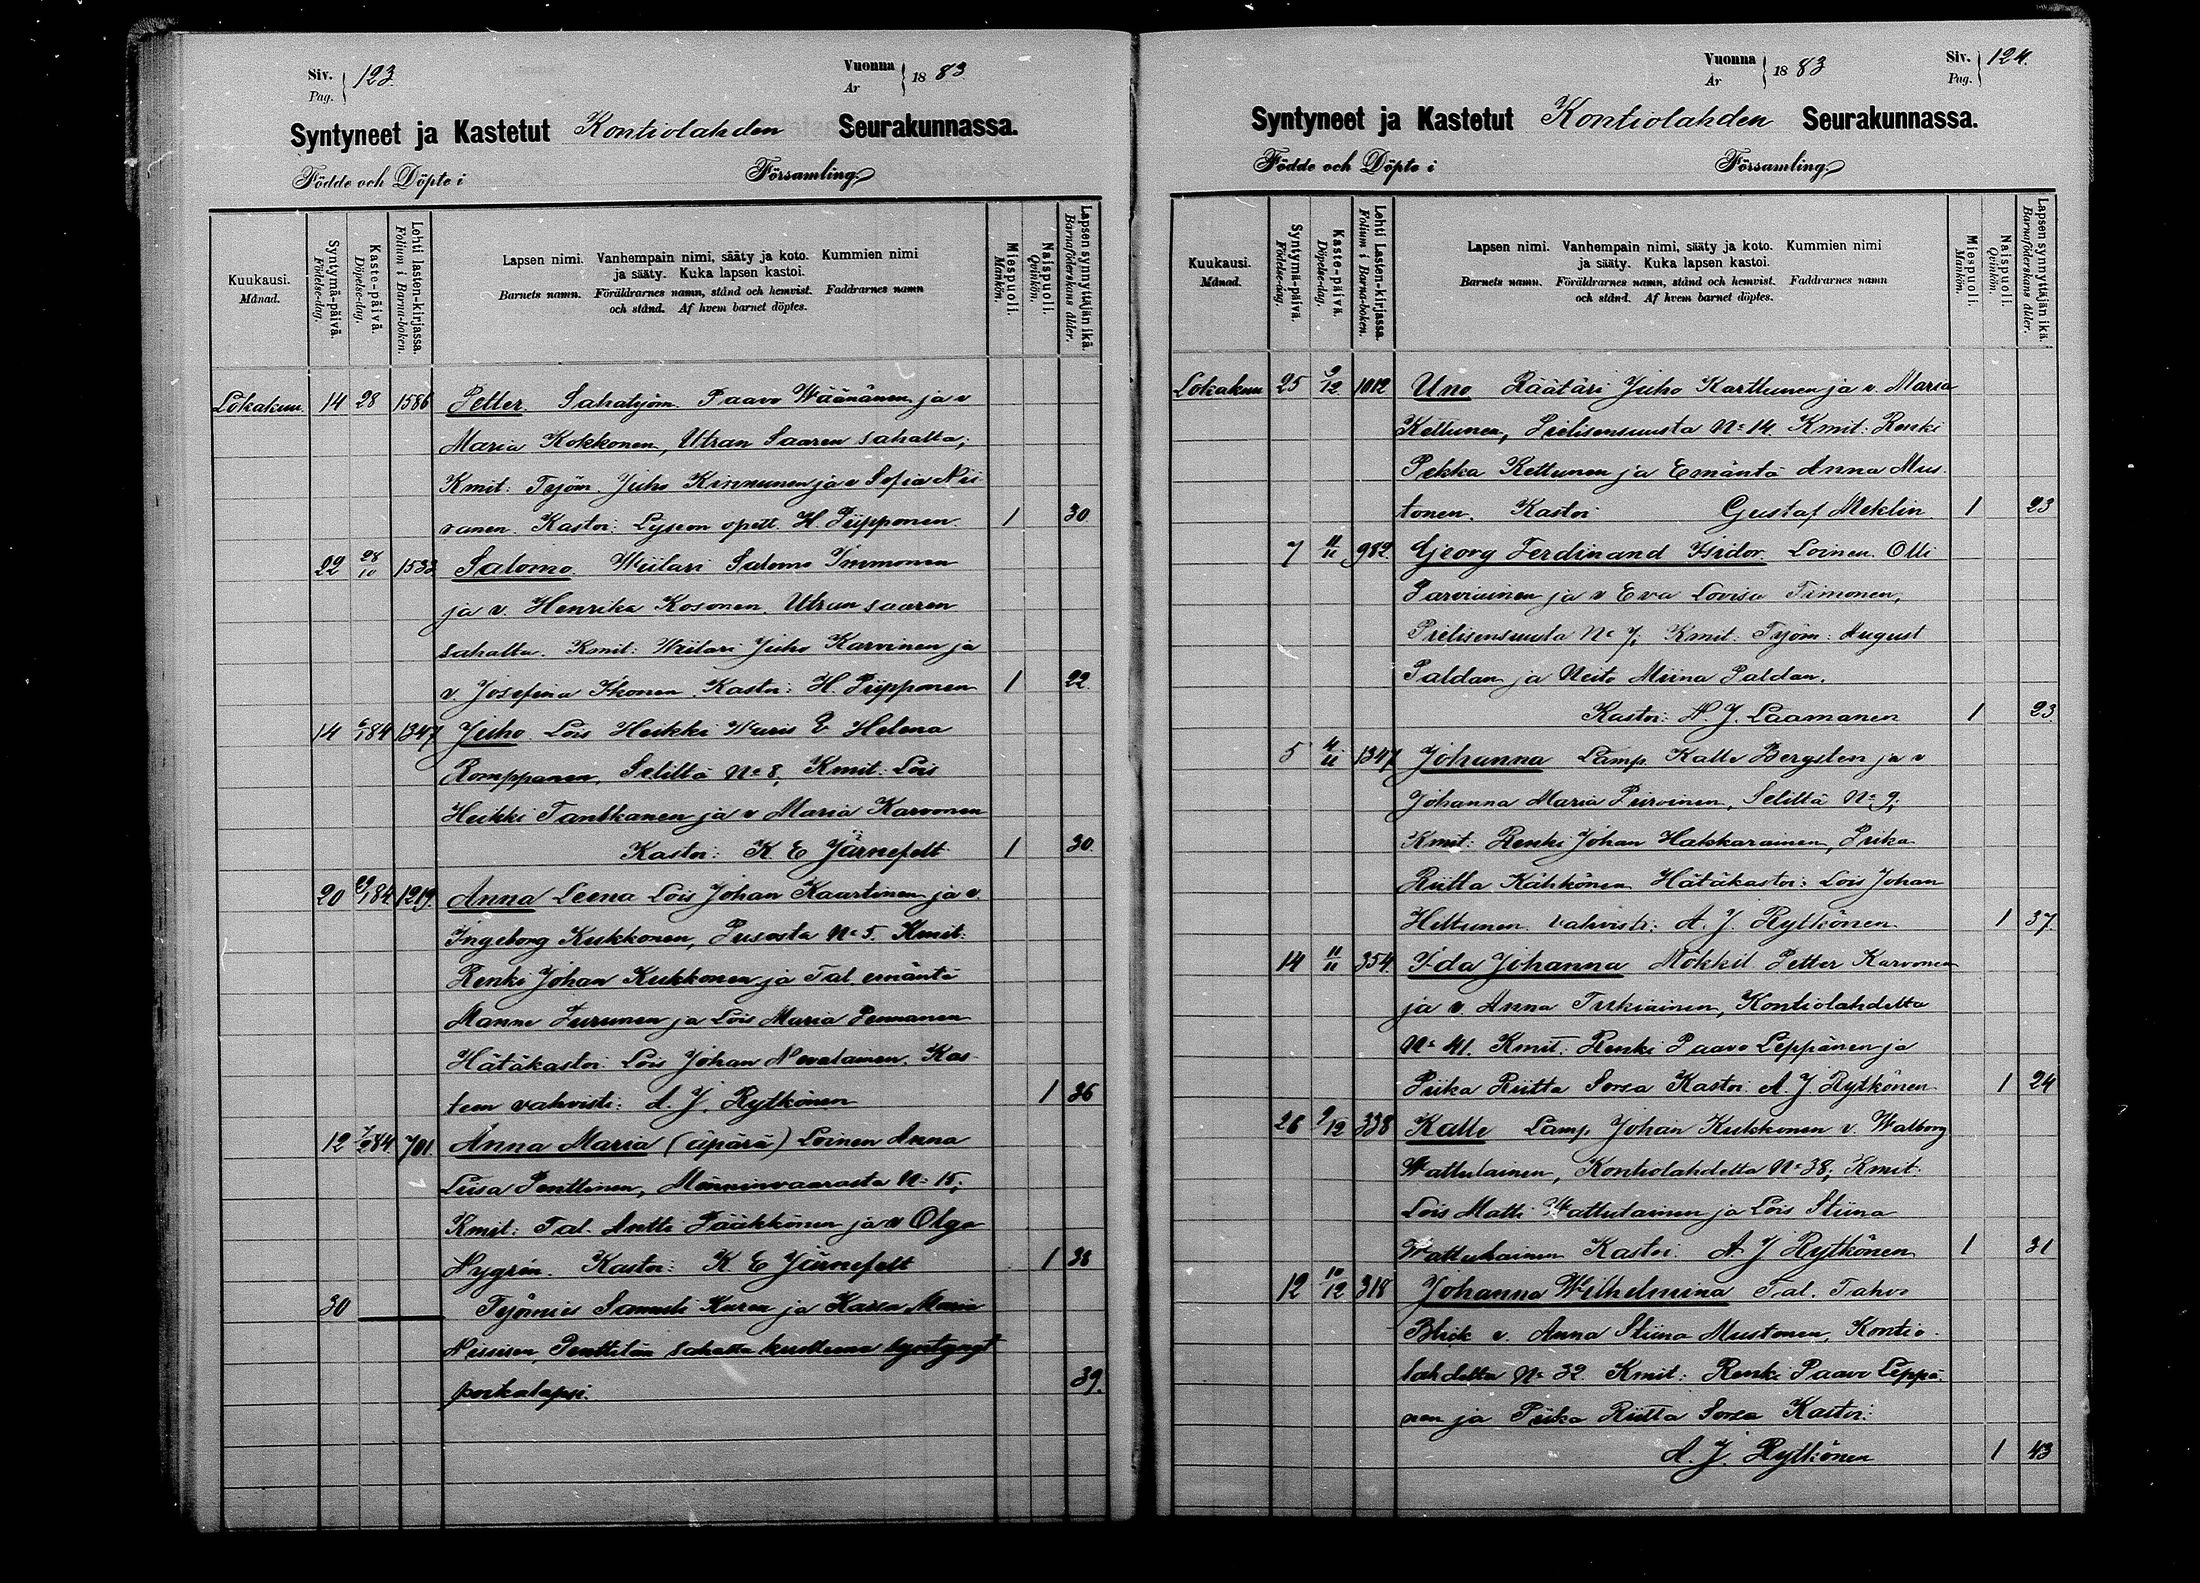 Siv. Pag. 123.
Vuonna År 1883
Syntyneet ja Kastetut Kontiolahden Seurakunnassa.
Födde och Döpte i Församling.
Kuukausi. Månad.
Syntymä-päivä. Födelse-dag.
Kaste-päivä. Döpelse-dag.
Lehti lasten-kirjassa. Folium i Barna-boken.
Lapsen nimi. Vanhempain nimi, sääty ja koto. Kummien nimi
ja sääty. Kuka lapsen kastoi.
Barnets namn. Föräldrarnes namn, stånd och hemvist. Faddrarnes namn
och stånd. Af hvem barnet döptes.
Miespuoli. Mankön.
Naispuoli. Qvinkön.
Lapsen synnyttäjän ikä. Barnaföderskans ålder.
Lokakuu. 14 28 1586 Petter. Sahatyöm. Paavo Wäänänen ja v
Maria Kokkonen, Utran Saaren sahalta;
Kmit: Työm. Juho Kinnunen ja v Sofia Nii
vanen. Kastoi: Lyseon opett. H. Piipponen 1 30
22 28/10 1532 Salomo. Wiilari Salomo Immonen
ja v. Henrika Kosonen. Utran saaren
sahalta. Kmit: Wiilari Juho Karvinen ja
v. Josefina Ikonen. Kastoi: H. Piipponen 1 22.
14 6/1 84 1347 Juho Lois Heikki Wuris & Helena
Romppanen, Seliltä No 8, Kmit: Lois
Heikki Tanskanen ja v Maria Karvonen
Kastoi: K E Järnefelt 1 30
20 1 84 1219. Anna Leena Lois Johan Kaartinen ja v.
Ingeborg Kukkonen, Pusosta No 5. Kmit:
Renki Johan Kukkonen ja Tal. emäntä
Manne Turunen ja Lois Maria Pennanen
Hätäkastoi: Lois Johan Nevalainen. Kas
teen vahvisti: A. J. Rytkönen 1 36
12 7/2 84. 701. Anna Maria (äpärä) Loinen Anna
Liisa Penttinen, Mönninvaarasta No 15;
Kmit: Tal. Antti Pääkkönen ja v Olga
Nygrén. Kastoi: K E Järnefelt 1 38
30 Työmies Samuli Kuren ja Kaisa Maria
Nissisen, Penttilän sahalta kuolleena syntynyt
poikalapsi. 39.
Vuonna År 1883
Siv. Pag. 124.
Syntyneet ja Kastetut Kontiolahden Seurakunnassa.
Födde och Döpte i Församling.
Kuukausi. Månad.
Syntymä-päivä. Födelse-dag.
Kaste-päivä. Döpelse-dag.
Lehti Lasten-kirjassa. Folium i Barna-boken.
Lapsen nimi. Vanhempain nimi, sääty ja koto. Kummien nimi
ja sääty. Kuka lapsen kastoi.
Barnets namn. Föräldrarnes namn, stånd och hemvist. Faddrarnes namn
och stånd. Af hvem barnet döptes.
Miespuoli. Mankön.
Naispuoli. Qvinkön.
Lapsen synnyttäjän ikä. Barnaföderskans ålder.
Lokakuu 25 9/12 1012 Uno Räätäri Juho Karttunen ja v. Maria
Kettunen, Pielisensuusta No 14. Kmit: Renki
Pekka Kettunen ja Emäntä Anna Mus
tonen. Kastoi Gustaf Meklin. 1 23
7 11/11 982. Georg Ferdinand Isidor. Loinen Olli
Parviainen ja v Eva Lovisa Timonen,
Pielisensuusta No 7; Kmit: Työm: August
Paldan ja Neito Miina Paldan.
Kastoi: A. J. Laamanen 1 23
5 4/11 1347 Johanna Lamp. Kalle Bergsten ja v
Johanna Maria Piiroinen, Seliltä No 9;
Kmit: Renki Johan Hakkarainen, Piika
Riitta Kähkönen Hätäkastoi: Lois Johan
Hiltunen vahvisti: A. J. Rytkönen. 1 37
14 11/11 354 Ida Johanna Mökkil. Petter Karvonen
ja v. Anna Turkiainen, Kontiolahdelta
No 41. Kmit: Renki Paavo Leppänen ja
Piika Riitta Sorsa Kastoi: A J. Rytkönen 1 24
26 9/12 338 Kalle Lamp Johan Kukkonen v. Walborg
Wattulainen, Kontiolahdelta No 38; Kmit:
Lois Matti Wattulainen ja Lois Stiina
Wattulainen Kastoi: A J Rytkönen 1 31
12 10/12 318 Johanna Wilhelmina Tal. Tahvo
Blick v. Anna Stiina Mustonen, Kontio
lahdelta No 32 Kmit: Renki Paavo Leppä
nen ja Piika Riitta Sorsa Kastoi:
A. J. Rytkönen 1 43